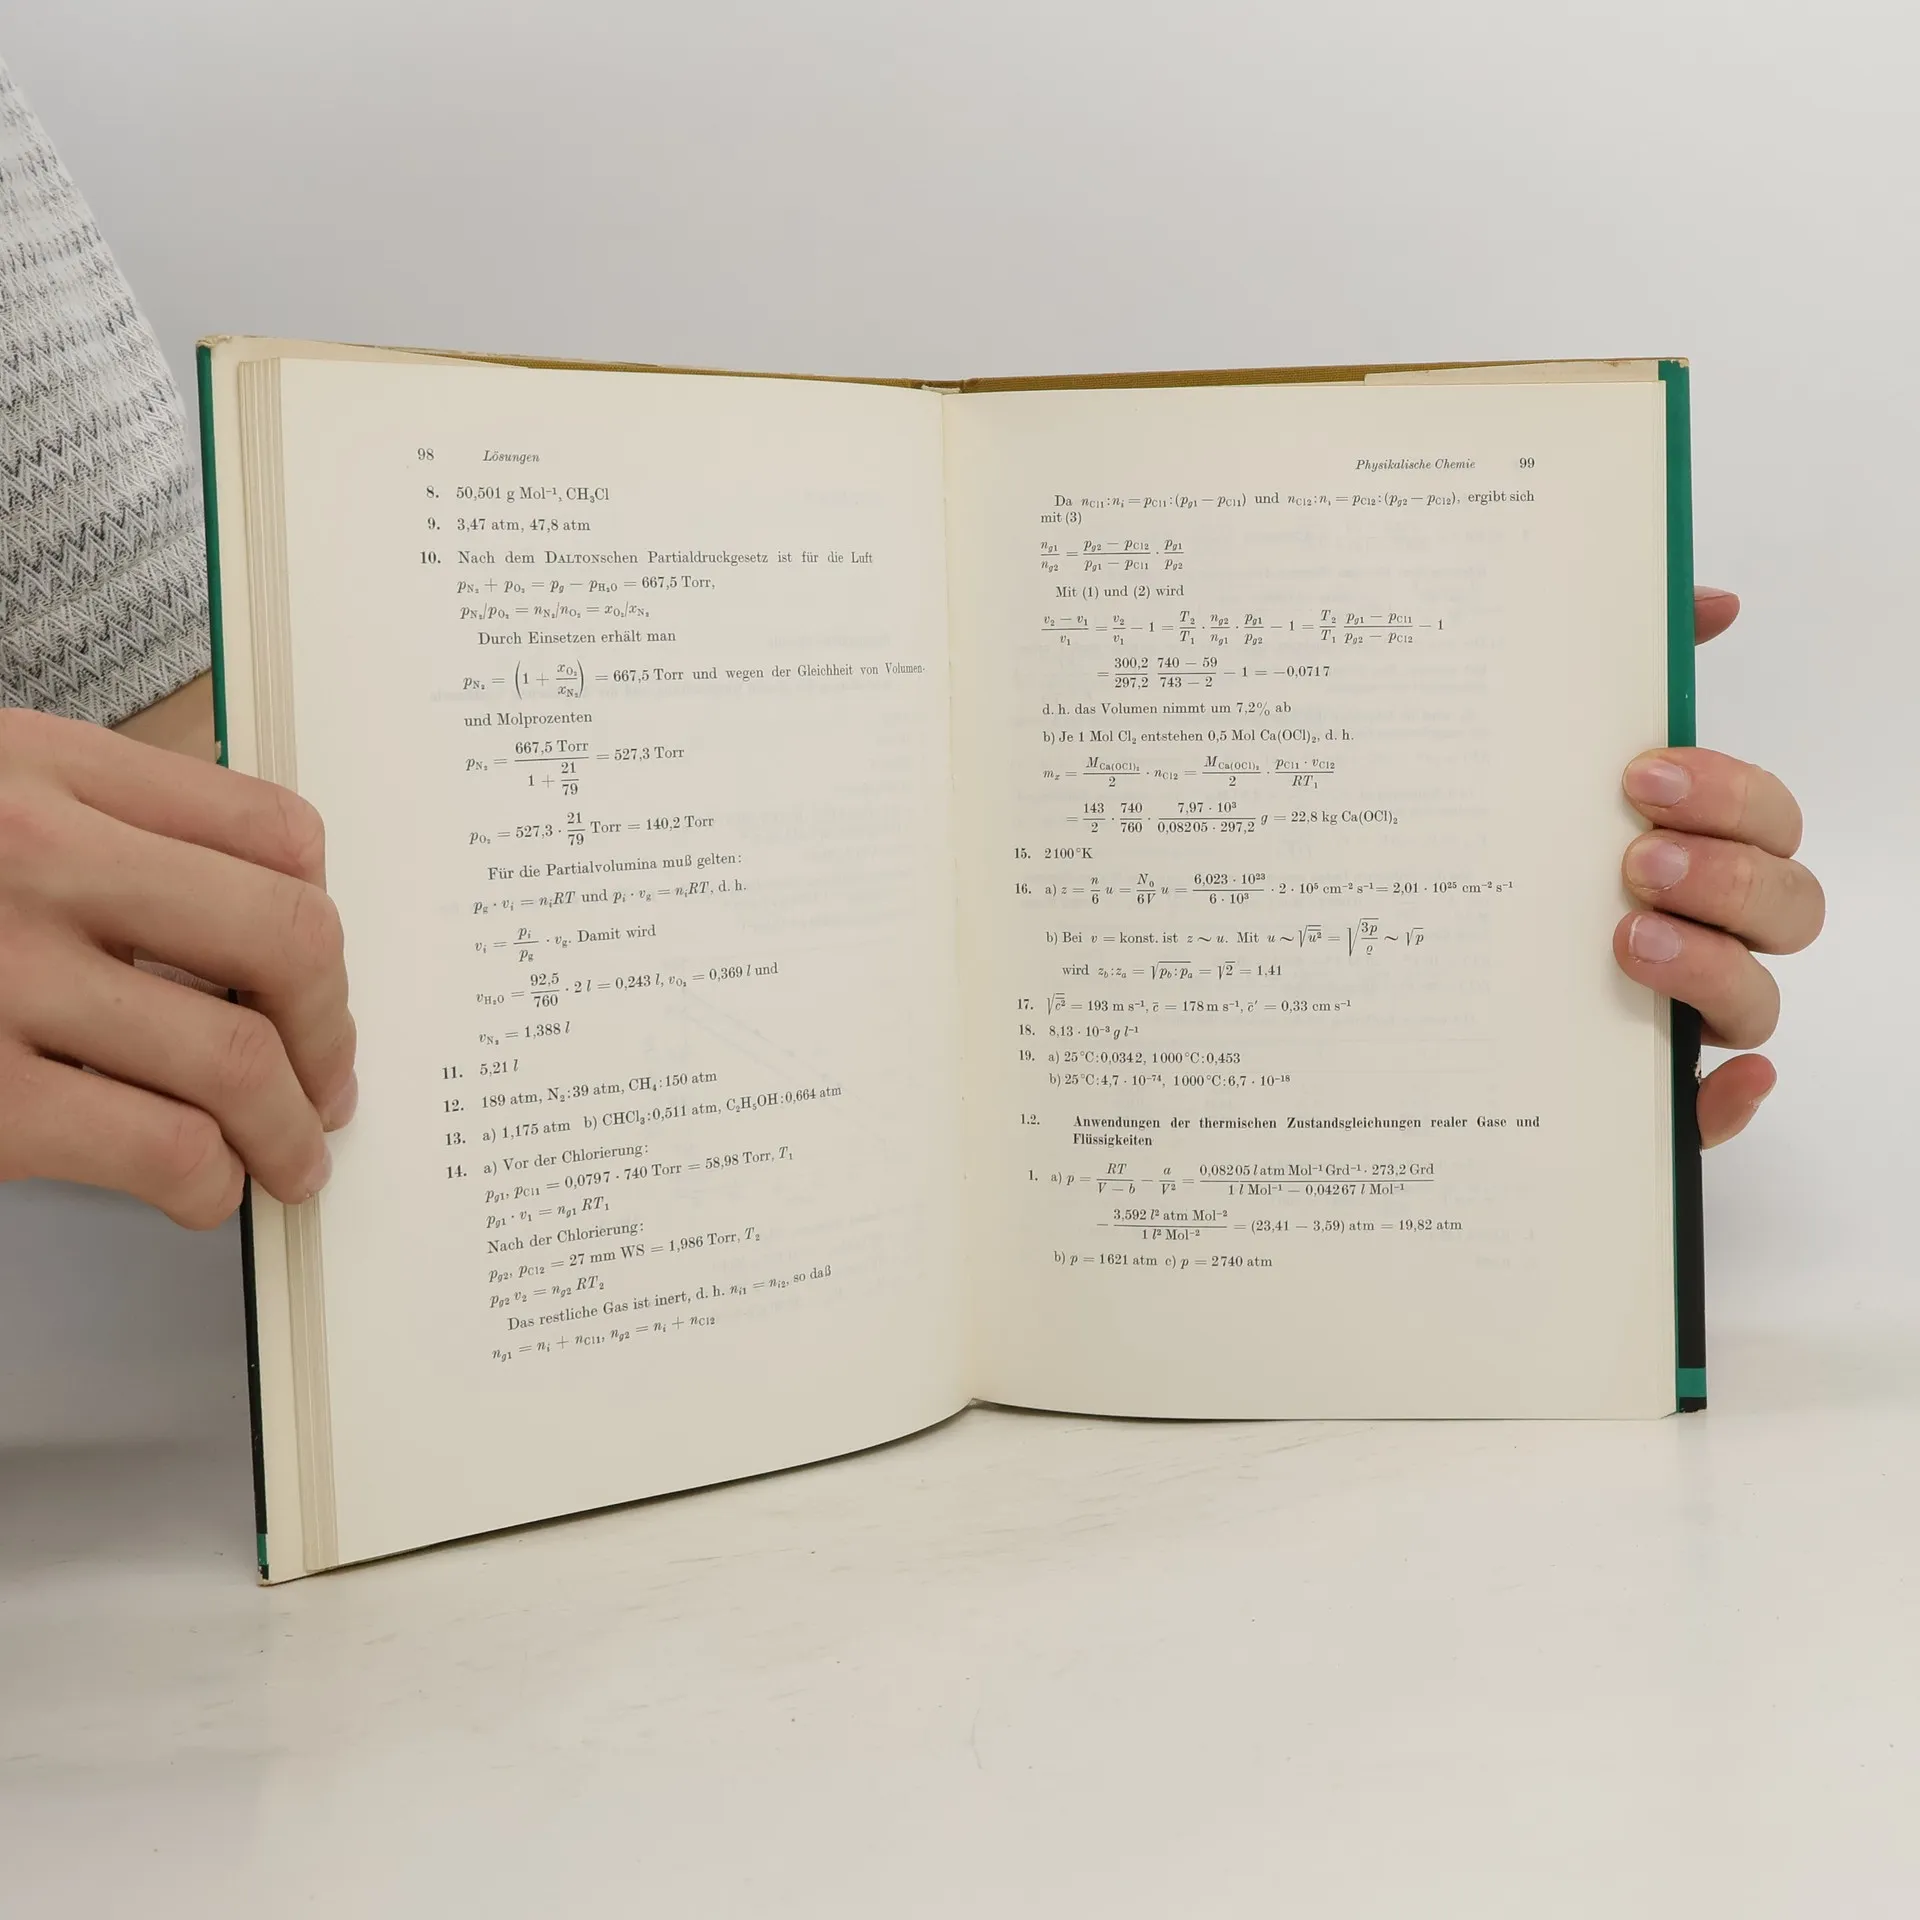 98 Lösungen
8. 50,501 g Mol⁻¹, CH₃Cl
9. 3,47 atm, 47,8 atm
10. Nach dem DALTONschen Partialdruckgesetz ist für die Luft
p_N₂ + p_O₂ = p_g − p_H₂O = 667,5 Torr,
p_N₂/p_O₂ = n_N₂/n_O₂ = x_O₂/x_N₂
Durch Einsetzen erhält man
p_N₂ = (1 + x_O₂/x_N₂) = 667,5 Torr und wegen der Gleichheit von Volumen-
und Molprozenten
p_N₂ = 667,5 Torr / (1 + 21/79) = 527,3 Torr
p_O₂ = 527,3 · 21/79 Torr = 140,2 Torr
Für die Partialvolumina muß gelten:
p_g · v_i = n_i RT und p_i · v_g = n_i RT, d. h.
v_i = p_i/p_g · v_g. Damit wird
v_H₂O = 92,5/760 · 2 l = 0,243 l, v_O₂ = 0,369 l und
v_N₂ = 1,388 l
11. 5,21 l
12. 189 atm, N₂:39 atm, CH₄:150 atm
13. a) 1,175 atm b) CHCl₃:0,511 atm, C₂H₅OH:0,664 atm
14. a) Vor der Chlorierung:
p_g1, p_Cl1 = 0,0797 · 740 Torr = 58,98 Torr, T₁
p_g1 · v₁ = n_g1 RT₁
Nach der Chlorierung:
p_g2, p_Cl2 = 27 mm WS = 1,986 Torr, T₂
p_g2 v₂ = n_g2 RT₂
Das restliche Gas ist inert, d. h. n_i1 = n_i2, so daß
n_g1 = n_i + n_Cl1, n_g2 = n_i + n_Cl2
Physikalische Chemie 99
Da n_Cl1:n_i = p_Cl1:(p_g1 − p_Cl1) und n_Cl2:n_i = p_Cl2:(p_g2 − p_Cl2), ergibt sich
mit (3)
n_g1/n_g2 = (p_g2 − p_Cl2)/(p_g1 − p_Cl1) · p_g1/p_g2
Mit (1) und (2) wird
(v₂ − v₁)/v₁ = v₂/v₁ − 1 = T₂/T₁ · n_g2/n_g1 · p_g1/p_g2 − 1 = T₂/T₁ (p_g1 − p_Cl1)/(p_g2 − p_Cl2) − 1
= 300,2/297,2 (740 − 59)/(743 − 2) − 1 = −0,0717
d. h. das Volumen nimmt um 7,2% ab
b) Je 1 Mol Cl₂ entstehen 0,5 Mol Ca(OCl)₂, d. h.
m_x = M_Ca(OCl)₂/2 · n_Cl2 = M_Ca(OCl)₂/2 · (p_Cl1 · v_Cl2)/(RT₁)
= 143/2 · 740/760 · (7,97 · 10³)/(0,08205 · 297,2) g = 22,8 kg Ca(OCl)₂
15. 2100°K
16. a) z = n/6 u = N₀/6V u = (6,023 · 10²³)/(6 · 10³) · 2 · 10⁵ cm⁻² s⁻¹ = 2,01 · 10²⁵ cm⁻² s⁻¹
b) Bei v = konst. ist z ∼ u. Mit u ∼ √u̅² = √(3p/ϱ) ∼ √p
wird z_b:z_a = √(p_b:p_a) = √2 = 1,41
17. √c̅² = 193 m s⁻¹, c̄ = 178 m s⁻¹, c̄′ = 0,33 cm s⁻¹
18. 8,13 · 10⁻³ g l⁻¹
19. a) 25°C:0,0342, 1000°C:0,453
b) 25°C:4,7 · 10⁻⁷⁴, 1000°C:6,7 · 10⁻¹⁸
1.2. Anwendungen der thermischen Zustandsgleichungen realer Gase und
Flüssigkeiten
1. a) p = RT/(V − b) − a/V² = (0,08205 l atm Mol⁻¹ Grd⁻¹ · 273,2 Grd)/(1 l Mol⁻¹ − 0,04267 l Mol⁻¹)
− (3,592 l² atm Mol⁻²)/(1 l² Mol⁻²) = (23,41 − 3,59) atm = 19,82 atm
b) p = 1621 atm c) p = 2740 atm